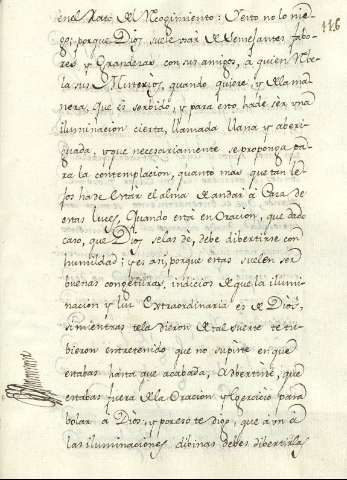 116
en el Rato del Recogimiento: Y esto no lo nie-
go; porque Dios suele usar de semejantes fabo-
res y Grandezas con sus amigos, á quien Rebe-
la sus Misterios, quando quiere, y de la ma-
nera, que es serbido, y para esto, ha de ser una
iluminacion cierta, llamada llana y aberi-
guada, y que necesariamente se proponga pa-
ra la contemplacion, quanto mas que tan le-
jos ha de estar el alma de andar á Caza de
estas luces, Quando está en Oracion, que dado
caso, que Dios se las dé, debe dibertirse con
humildad; y es asi, porque estas suelen ser
buenas congeturas, indicios de que la ilumi-
nacion y luz Extraordinaria es de Dios,
si mientras te la dieron de tal suerte te tu-
bieron entretenido que no supiste en que
estabas hasta que acabada, adbertiste, que
estabas fuera de la Oracion y Egercicio para
bolar á Dios, y por eso te digo, que aun á
las iluminaciones dibinas debes dibertirlas